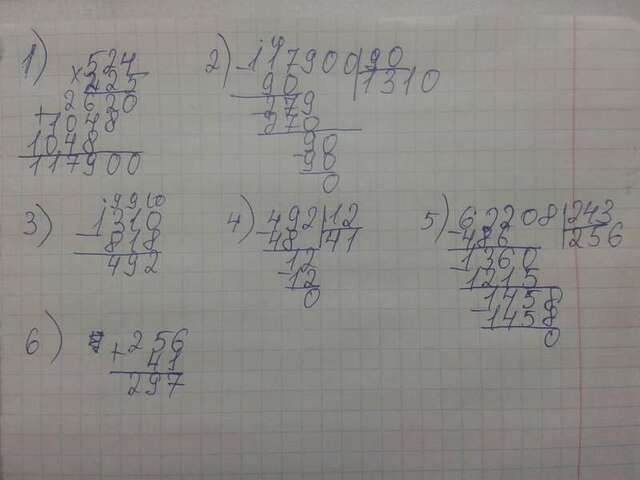 1)
× 524
225
2620
+ 1048
1048
117900
2)
- 117900 | 90
90 | 1310
- 279
270
- 90
90
0
3)
9 9 10
- 1310
818
492
4)
- 492 | 12
48 | 41
- 12
12
0
5)
- 62208 | 243
486 | 256
- 1360
1215
- 1458
1458
0
6)
+ 256
41
297